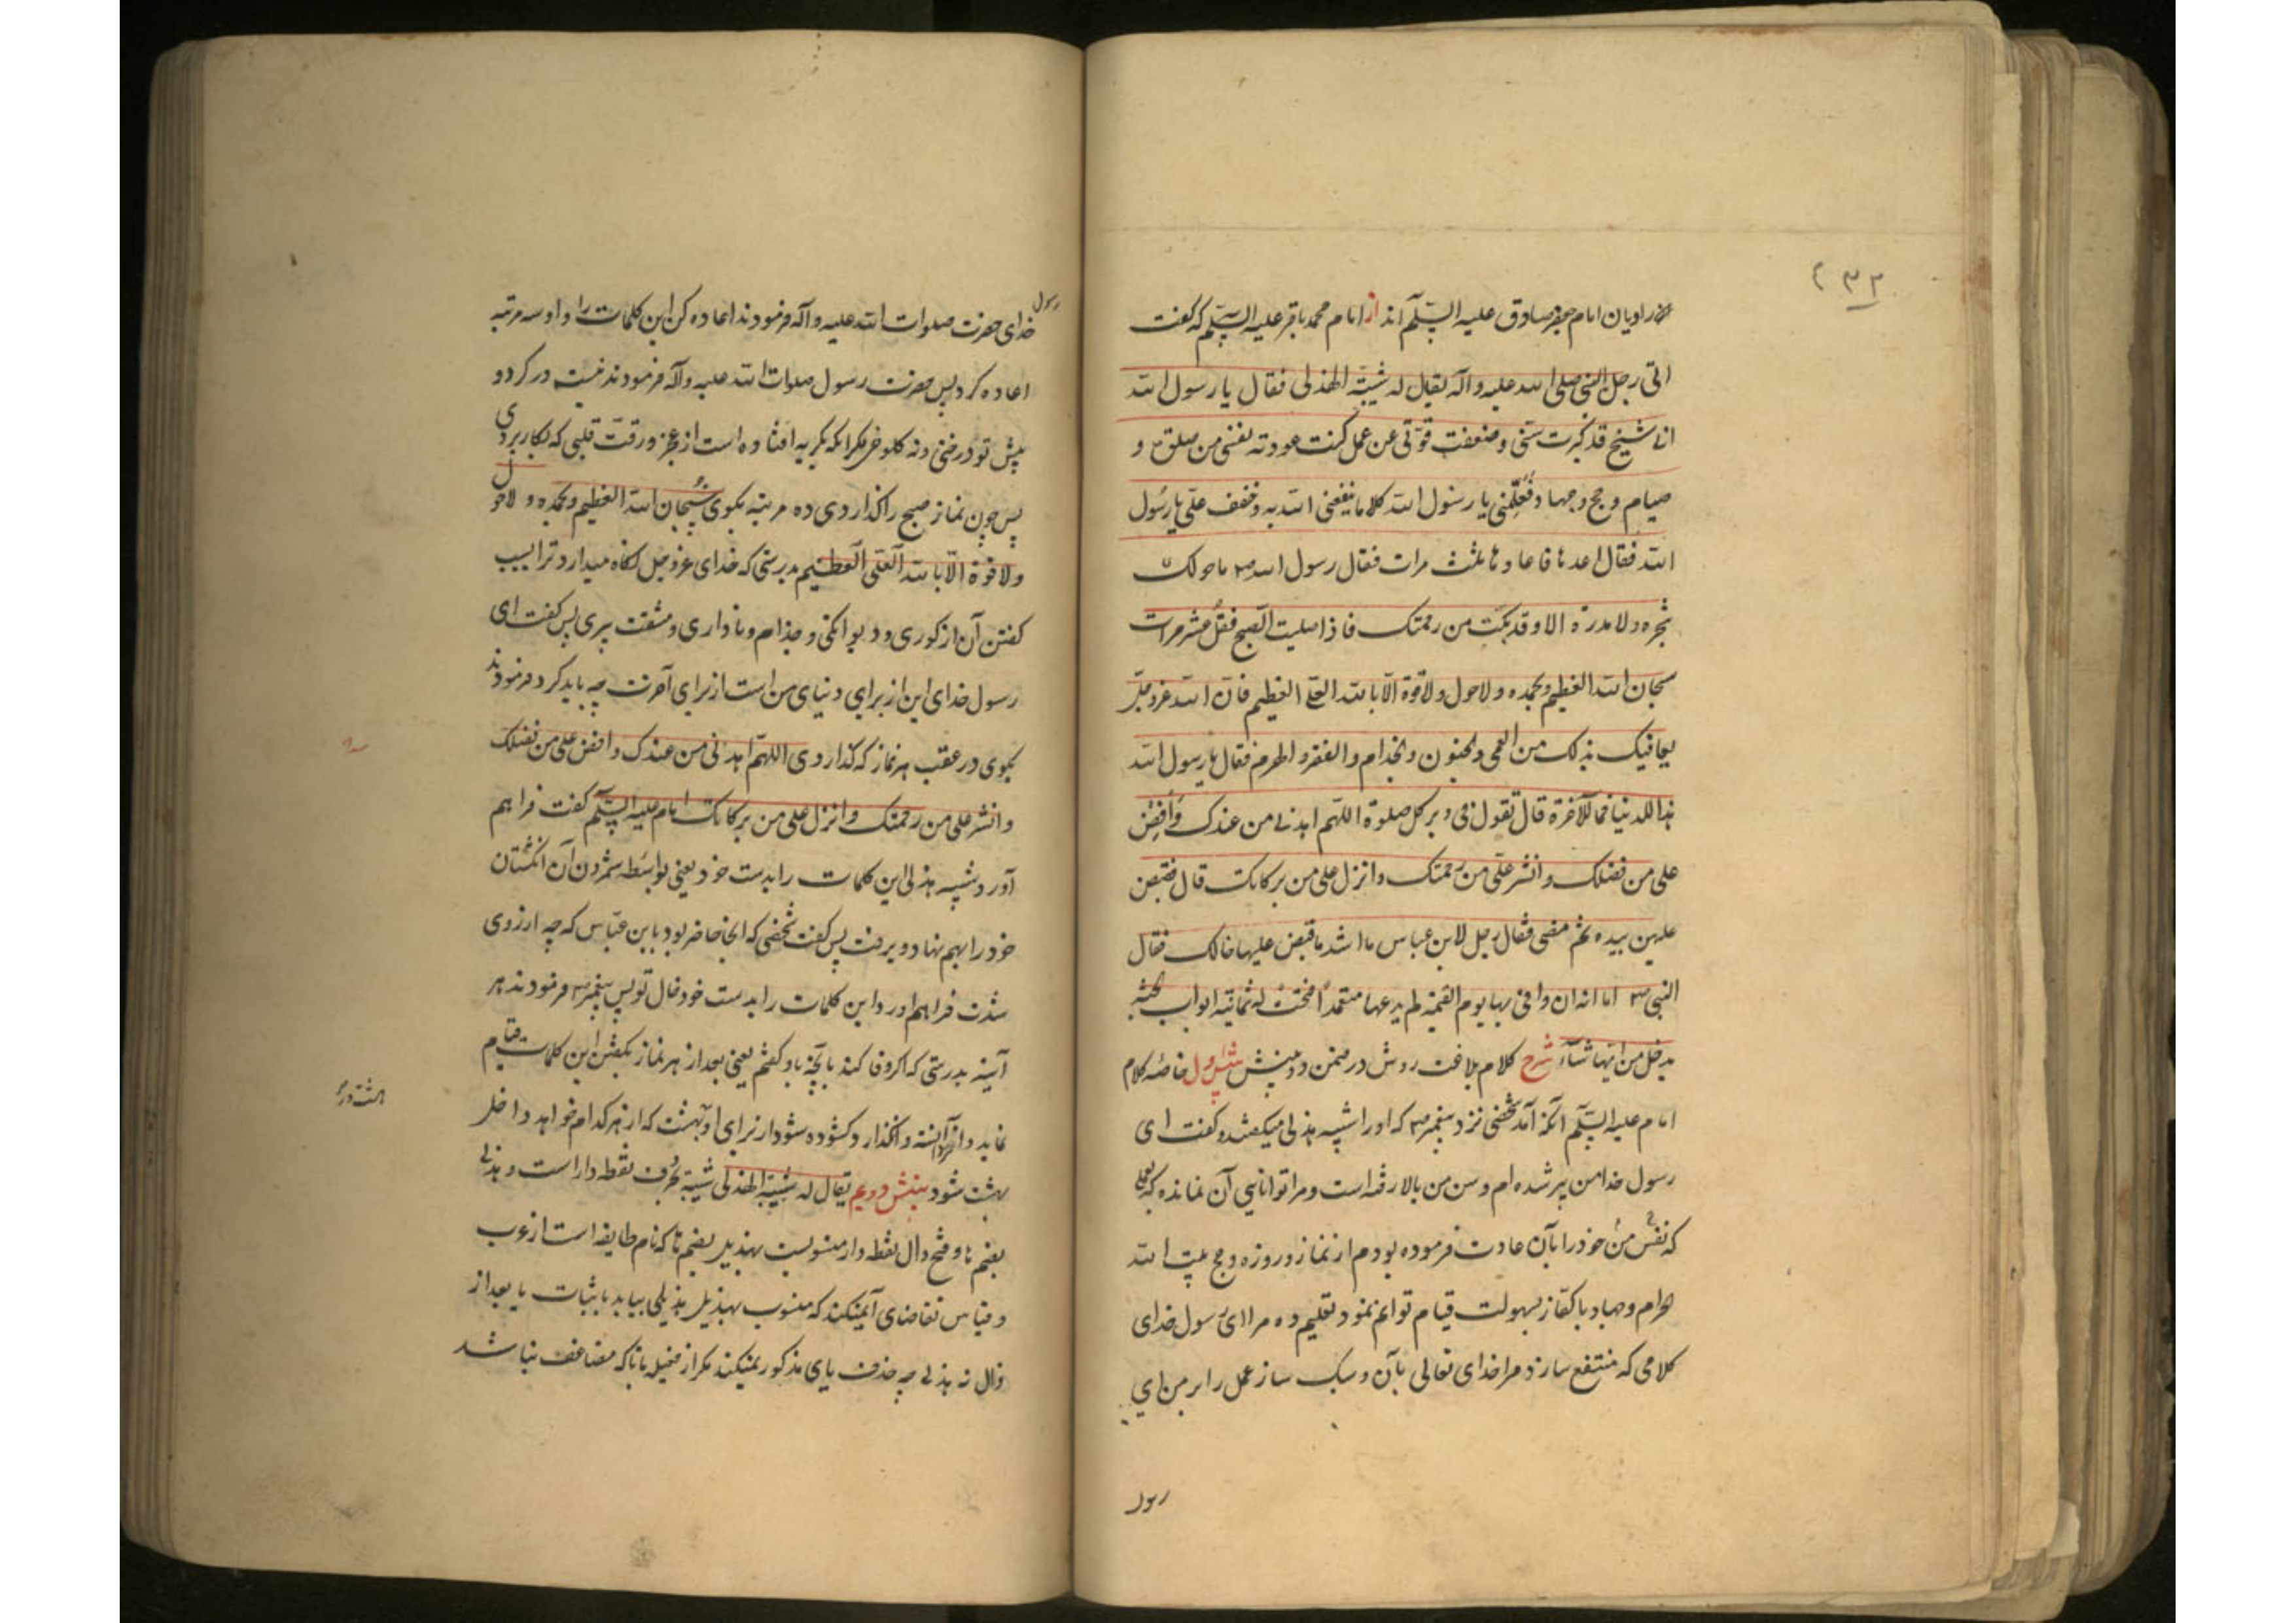 راویان امام جعفر صادق علیه السلم اند از امام محمد باقر علیه السلم که گفت
اتی رجل النبی صلی الله علیه و اله یقال له شیبة الهذلی فقال یا رسول الله
انی شیخ قد کبرت سنی و ضعفت قوتی عن عمل کنت عودته نفسی من صلوة و
صیام و حج و جهاد فعلمنی یا رسول الله کلاما ینفعنی الله به و خفف علی یا رسول
الله فقال اعدها فاعادها ثلث مرات فقال رسول الله ص ما حولک
شجرة و لا مدرة الا و قد بکت من رحمتک فاذا صلیت الصبح فقل عشر مرات
سبحان الله العظیم و بحمده و لا حول و لا قوة الا بالله العلی العظیم فان الله عز و جل
یعافیک بذلک من العمی و الجنون و الجذام و الفقر و الهرم فقال یا رسول الله
هذا للدنیا فما للآخرة قال تقول فی دبر کل صلوة اللهم اهدنی من عندک و افض
علی من فضلک و انشر علی من رحمتک و انزل علی من برکاتک قال فقبض
علیهن بیده ثم مضی فقال رجل لابن عباس ما اشد ما قبض علیها خالک فقال
النبی ص اما انه ان وافی بها یوم القیمة لم یدعها متعمدا فتحت له ثمانیة ابواب الجنة
یدخل من ایها شاء شرح کلام بلاغت روش در ضمن دو بینش بینش اول خلاصه کلام
امام علیه السلم آنکه آمد شخصی نزد پیغمبر ص که او را شیبه هذلی میگفتند و گفت ای
رسول خدا من پیر شده ام و سن من بالا رفته است و مرا توانایی آن نمانده که بعملی
که نفس من خود را بآن عادت فرموده بودم از نماز و روزه و حج بیت الله
الحرام و جهاد با کفار بسهولت قیام توانم نمود تعلیم ده مرا ای رسول خدای
کلامی که منتفع سازد مرا خدای تعالی بآن و سبک ساز عمل را بر من ای
رسول
رسول
خدای حضرت صلوات الله علیه و آله فرمودند اعاده کن این کلمات را و او سه مرتبه
اعاده کرد پس حضرت رسول صلوات الله علیه و آله فرمودند نیست در گرد و
پیش تو درختی و نه کلوخی مگر آنکه بگریه افتاده است از عجز و رقت قلبی که بکار بردی
پس چون نماز صبح را گذاردی ده مرتبه بگوی سبحان الله العظیم و بحمده و لا حول
و لا قوة الا بالله العلی العظیم بدرستی که خدای عز و جل نگاه میدارد ترا بسبب
گفتن آن از کوری و دیوانگی و جذام و ناداری و مشقت پیری پس گفت ای
رسول خدای این از برای دنیای من است از برای آخرت چه باید کرد فرمودند
بگوی در عقب هر نماز که گذاردی اللهم اهدنی من عندک و افض علی من فضلک
و انشر علی من رحمتک و انزل علی من برکاتک امام علیه السلم گفت فراهم
آورد شیبه هذلی این کلمات را بدست خود یعنی بواسطه شمردن آن انگشتان
خود را بهم نهاد و برفت پس گفت شخصی که آنجا حاضر بود بابن عباس که چه ارزوی
شدت فراهم آورد این کلمات را بدست خود خال تو پس پیغمبر ص فرمودند هر
آینه بدرستی که اگر وفا کند بآنچه باو گفتم یعنی بعد از هر نماز بگفتن این کلمات قیام
نماید و آنرا دانسته وانگذارد گشوده شود از برای او بهشت که از هر کدام خواهد داخل
هشت در
بهشت شود بینش دویم یقال له شیبة الهذلی شیبة بحرف نقطه دار است و هذلی
بضم ها و فتح ذال نقطه دار منسوبست بهذیل بضم ها که نام طایفه است از عرب
و قیاس تقاضای آن میکند که منسوب بهذیل هذیلی بیاید باثبات یا بعد از
ذال نه هذلی چه حذف یای مذکور نمیکنند مگر از فعیله با تا که مضاعف نباشد